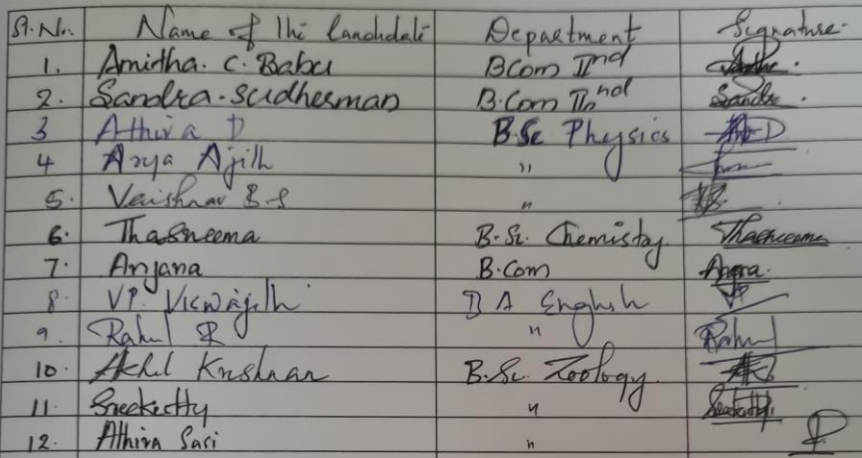 Sl.No. Name of the Candidate Department Signature
1. Amirtha. C. Babu BCom IInd
2. Sandra. Sudhesman B.Com IInd Sandra
3 Athira D B.Sc Physics
4 Arya Ajith "
5. Vaishnav B.S "
6. Thasneema B.Sc. Chemistry Thasneema
7. Anjana B.Com
8. VP. Viswajith B A English VP
9. Rahul R " Rahul
10. Akhil Krishnan B.Sc. Zoology.
11. Sreekutty " Sreekutty
12. Athira Sasi "